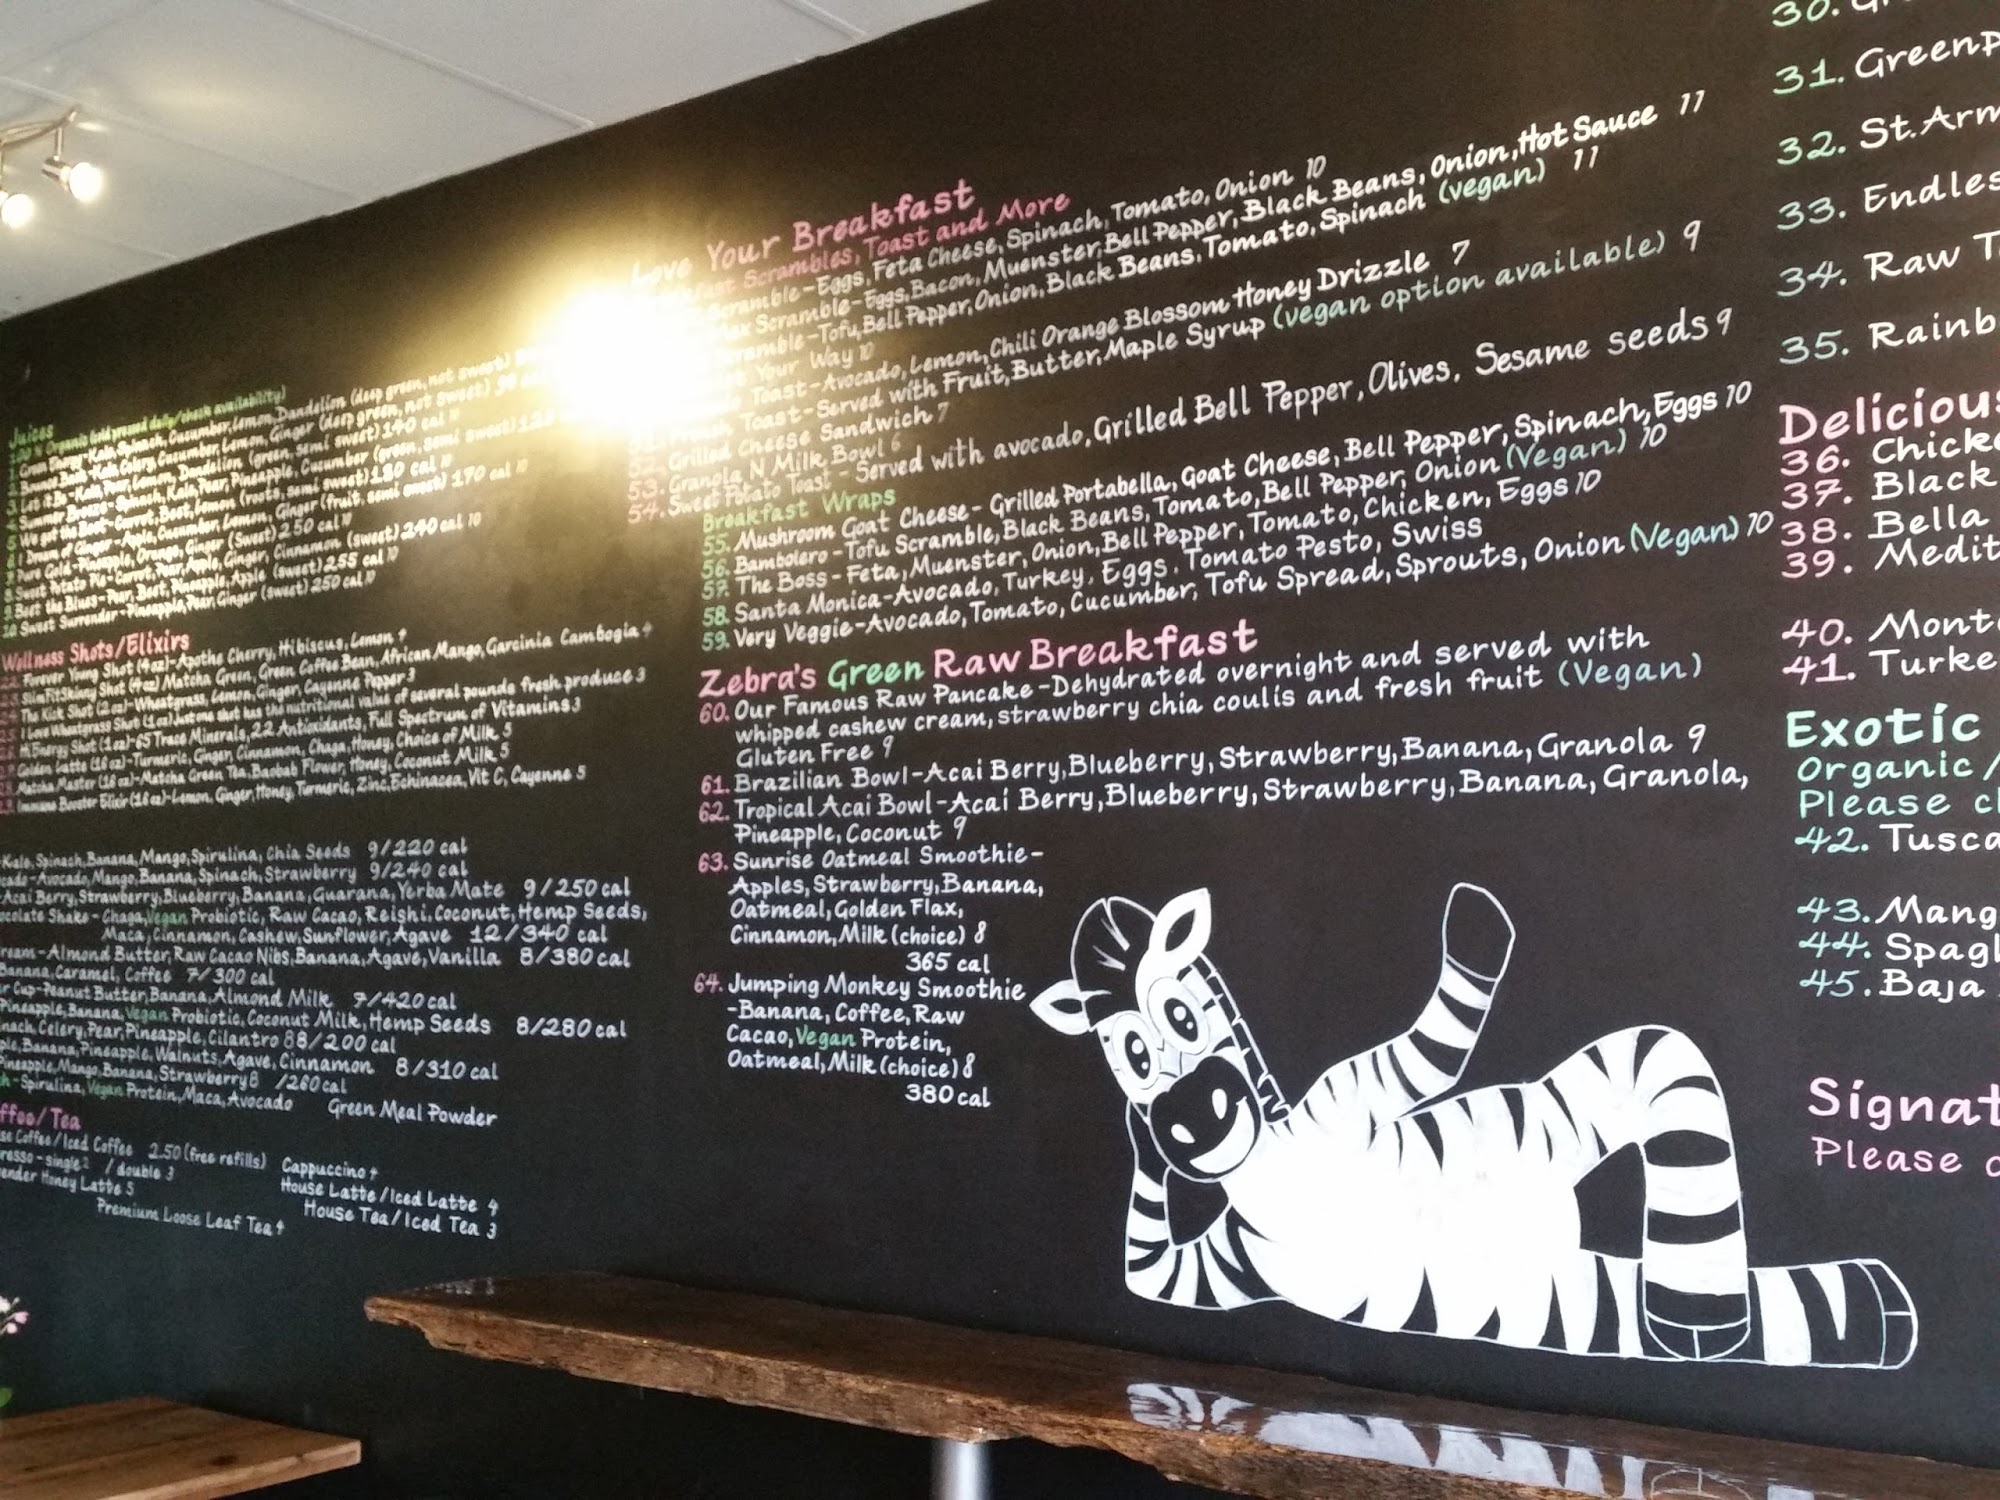 Juices
100% Organic (cold pressed daily/check availability)
Green Energy-Kale, Spinach, Cucumber, Lemon, Dandelion (deep green, not sweet)
Kale, Celery, Cucumber, Lemon, Ginger (deep green, not sweet) 90 cal
Let it Be-Kale, Pear, Lemon, Dandelion (green, semi sweet) 140 cal 10
Summer Breeze-Spinach, Kale, Pear, Pineapple, Cucumber (green, semi sweet)
We got the Beet-Carrot, Beet, Lemon (roots, semi sweet) 180 cal 10
I Dream of Ginger-Apple, Cucumber, Lemon, Ginger (fruit, semi sweet) 170 cal 10
Pure Gold-Pineapple, Orange, Ginger (Sweet) 250 cal 10
Sweet Potato Pie-Carrot, Pear, Apple, Ginger, Cinnamon (sweet) 240 cal 10
Beet the Blues-Pear, Beet, Pineapple, Apple (sweet) 255 cal 10
Sweet Surrender-Pineapple, Pear, Ginger (sweet) 250 cal 10
Wellness Shots/Elixirs
Forever Young Shot (4oz)-Apothe Cherry, Hibiscus, Lemon 4
SlimFitSkinny Shot (4oz) Matcha Green, Green Coffee Bean, African Mango, Garcinia Cambogia 4
The Kick Shot (2oz)-Wheatgrass, Lemon, Ginger, Cayenne Pepper 3
I Love Wheatgrass Shot (1oz) Just one shot has the nutritional value of several pounds fresh produce 3
Hi Energy Shot (1oz)-65 Trace Minerals, 22 Antioxidants, Full Spectrum of Vitamins 3
Golden Latte (16oz)-Turmeric, Ginger, Cinnamon, Chaga, Honey, Choice of Milk 5
Matcha Master (16oz)-Matcha Green Tea, Baobab Flower, Honey, Coconut Milk 5
Immune Booster Elixir (16oz)-Lemon, Ginger, Honey, Turmeric, Zinc, Echinacea, Vit C, Cayenne 5
Kale, Spinach, Banana, Mango, Spirulina, Chia Seeds 9/220 cal
cado-Avocado, Mango, Banana, Spinach, Strawberry 9/240 cal
Acai Berry, Strawberry, Blueberry, Banana, Guarana, Yerba Mate 9/250 cal
ocolate Shake-Chaga, Vegan Probiotic, Raw Cacao, Reishi, Coconut, Hemp Seeds,
Maca, Cinnamon, Cashew, Sunflower, Agave 12/340 cal
ream-Almond Butter, Raw Cacao Nibs, Banana, Agave, Vanilla 8/380 cal
Banana, Caramel, Coffee 7/300 cal
r Cup-Peanut Butter, Banana, Almond Milk 7/420 cal
Pineapple, Banana, Vegan Probiotic, Coconut Milk, Hemp Seeds 8/280 cal
nach, Celery, Pear, Pineapple, Cilantro 8 8/200 cal
ple, Banana, Pineapple, Walnuts, Agave, Cinnamon 8/310 cal
Pineapple, Mango, Banana, Strawberry 8 /260 cal
h-Spirulina, Vegan Protein, Maca, Avocado Green Meal Powder
ffee/Tea
se Coffee/Iced Coffee 2.50 (free refills) Cappuccino 4
resso-single 2 /double 3 House Latte/Iced Latte 4
ender Honey Latte 5 House Tea/Iced Tea 3
Premium Loose Leaf Tea 4
Love Your Breakfast
Scrambles, Toast and More
Scramble-Eggs, Feta Cheese, Spinach, Tomato, Onion 10
Scramble-Eggs, Bacon, Muenster, Bell Pepper, Black Beans, Onion, Hot Sauce 11
Scramble-Tofu, Bell Pepper, Onion, Black Beans, Tomato, Spinach (vegan) 11
Your Way 10
Toast-Avocado, Lemon, Chili Orange Blossom Honey Drizzle 7
French Toast-Served with Fruit, Butter, Maple Syrup (vegan option available) 9
52. Grilled Cheese Sandwich 7
53. Granola N Milk Bowl 6
54. Sweet Potato Toast - Served with avocado, Grilled Bell Pepper, Olives, Sesame seeds 9
Breakfast Wraps
55. Mushroom Goat Cheese-Grilled Portabella, Goat Cheese, Bell Pepper, Spinach, Eggs 10
56. Bambolero-Tofu Scramble, Black Beans, Tomato, Bell Pepper, Onion (Vegan) 10
57. The Boss-Feta, Muenster, Onion, Bell Pepper, Tomato, Chicken, Eggs 10
58. Santa Monica-Avocado, Turkey, Eggs, Tomato Pesto, Swiss
59. Very Veggie-Avocado, Tomato, Cucumber, Tofu Spread, Sprouts, Onion (Vegan) 10
Zebra's Green Raw Breakfast
60. Our Famous Raw Pancake-Dehydrated overnight and served with
whipped cashew cream, strawberry chia coulis and fresh fruit (Vegan)
Gluten Free 9
61. Brazilian Bowl-Acai Berry, Blueberry, Strawberry, Banana, Granola 9
62. Tropical Acai Bowl-Acai Berry, Blueberry, Strawberry, Banana, Granola,
Pineapple, Coconut 9
63. Sunrise Oatmeal Smoothie-
Apples, Strawberry, Banana,
Oatmeal, Golden Flax,
Cinnamon, Milk (choice) 8
365 cal
64. Jumping Monkey Smoothie
-Banana, Coffee, Raw
Cacao, Vegan Protein,
Oatmeal, Milk (choice) 8
380 cal
30. Gr
31. Greenp
32. St. Arm
33. Endles
34. Raw T
35. Rainb
Delicious
36. Chick
37. Black
38. Bella
39. Medit
40. Mont
41. Turke
Exotic
Organic/
Please c
42. Tusca
43. Mang
44. Spagh
45. Baja
Signat
Please